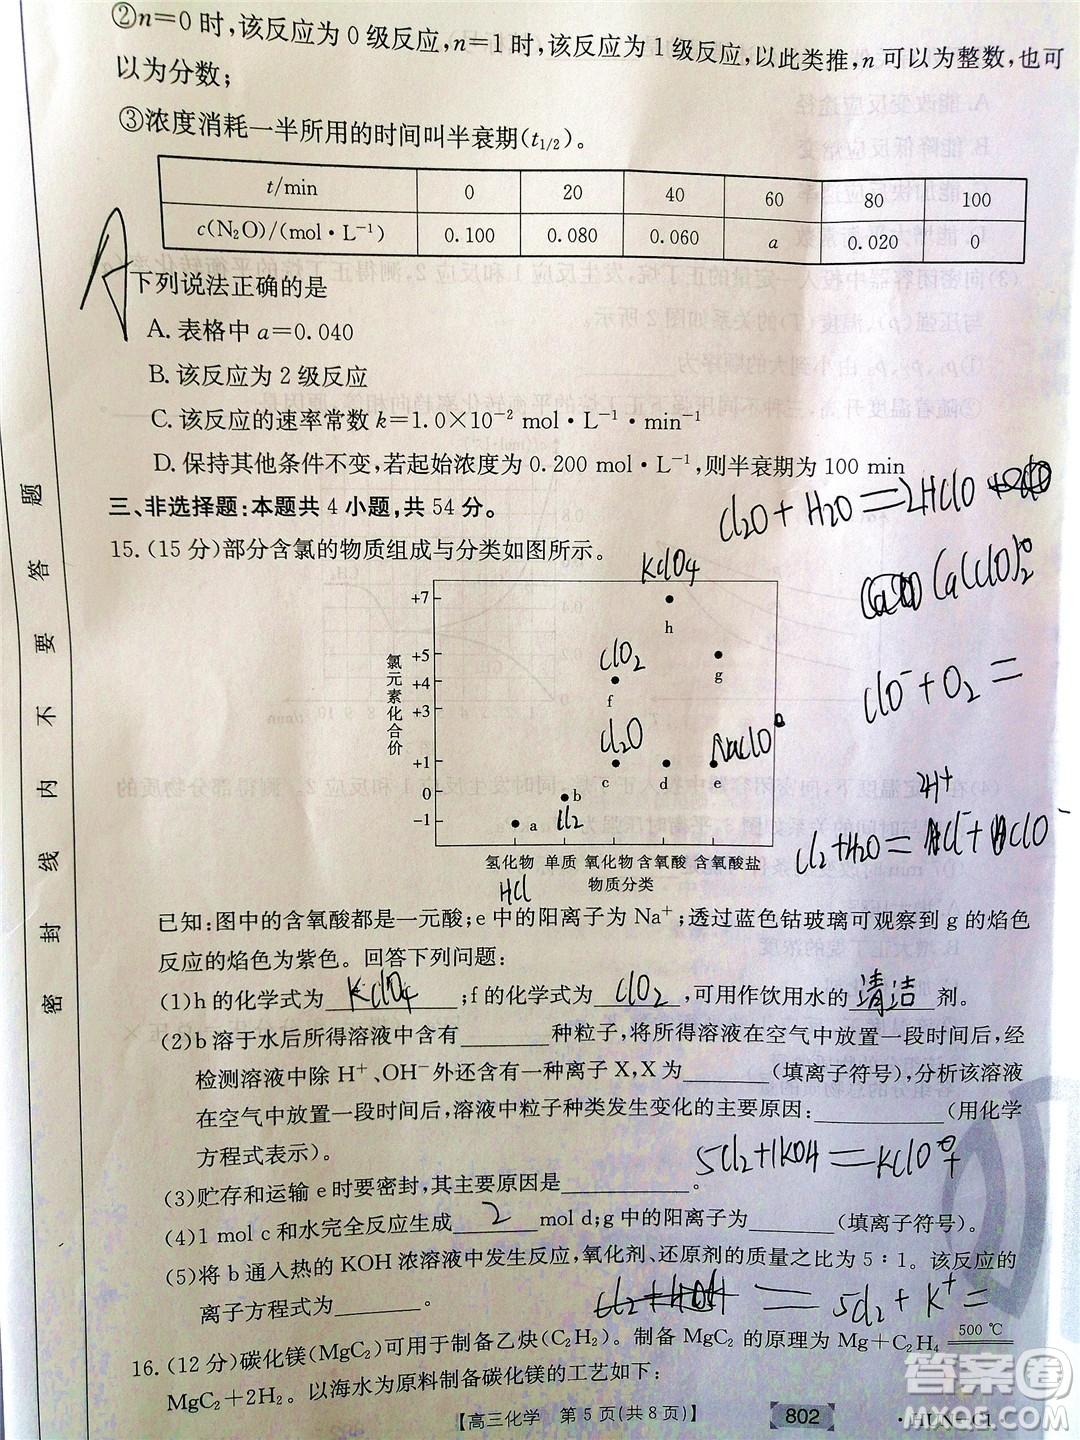 ②n=0时,该反应为0级反应,n=1时,该反应为1级反应,以此类推,n可以为整数,也可
以为分数;
③浓度消耗一半所用的时间叫半衰期(t1/2)。
t/min 0 20 40 60 80 100
c(N₂O)/(mol·L⁻¹) 0.100 0.080 0.060 a 0.020 0
A
下列说法正确的是
A. 表格中a=0.040
B. 该反应为2级反应
C. 该反应的速率常数k=1.0×10⁻² mol·L⁻¹·min⁻¹
D. 保持其他条件不变,若起始浓度为0.200 mol·L⁻¹,则半衰期为100 min
三、非选择题:本题共4小题,共54分。
Cl2O+H2O=2HClO
15.(15分)部分含氯的物质组成与分类如图所示。
KClO4
Ca(ClO)2
+7
h
+5
ClO2
g
+4
f
+3
ClO⁻+O2=
氯元素化合价
Cl2O
NaClO
+1
c d e
0
b
Cl2
-1
a
2H+
Cl2+H2O=HCl+HClO
氢化物 单质 氧化物 含氧酸 含氧酸盐
HCl
物质分类
已知:图中的含氧酸都是一元酸;e中的阳离子为Na⁺;透过蓝色钴玻璃可观察到g的焰色
反应的焰色为紫色。回答下列问题:
(1)h的化学式为 KClO4 ;f的化学式为 ClO2 ,可用作饮用水的 清洁 剂。
(2)b溶于水后所得溶液中含有________种粒子,将所得溶液在空气中放置一段时间后,经
检测溶液中除H⁺、OH⁻外还含有一种离子X,X为________(填离子符号),分析该溶液
在空气中放置一段时间后,溶液中粒子种类发生变化的主要原因:____________(用化学
方程式表示)。
5Cl2+KOH=KClO
(3)贮存和运输e时要密封,其主要原因是____________。
(4)1 mol c和水完全反应生成 2 mol d;g中的阳离子为________(填离子符号)。
(5)将b通入热的KOH浓溶液中发生反应,氧化剂、还原剂的质量之比为5:1。该反应的
离子方程式为________。
5Cl2+K+=
16.(12分)碳化镁(MgC₂)可用于制备乙炔(C₂H₂)。制备MgC₂的原理为Mg+C₂H₄ 500 ℃
MgC₂+2H₂。以海水为原料制备碳化镁的工艺如下:
【高三化学 第5页(共8页)】
802
密 封 线 内 不 要 答 题
答案圈